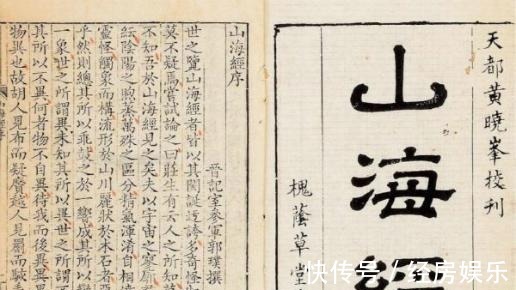 天都黄曉峯校刊
山海經
槐蔭草堂
山海經序
晉記室參軍郭璞撰
世之覽山海經者皆以其閎誕迂誇多奇怪
莫不疑焉嘗試論之曰莊生有云人之所知莫
不知吾於山海經見之矣夫以宇宙之寥廓
紜陰陽之煦蒸萬殊之區分精氣渾淆自相
靈怪觸象而構流形於山川麗狀於木石者惡
乎然則總其所以乖鼓之於一響成其所以
一象世之所謂異未知其所以異世之所謂不
其所以不異何者物不自異待我而後異異
物異也故胡人見布而疑黂越人見罽而駭
快传号／经房娱乐